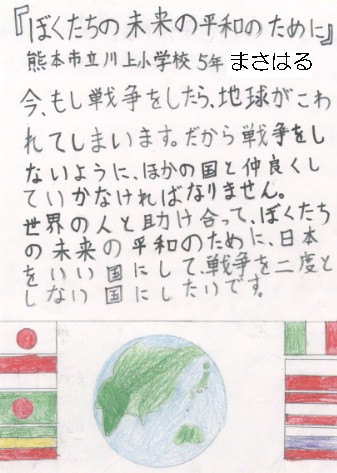 『ぼくたちの未来の平和のために』
熊本市立川上小学校 5年 まさはる
今、もし戦争をしたら、地球がこわ
れてしまいます。だから戦争をし
ないように、ほかの国と仲良くし
ていかなければなりません。
世界の人と助け合って、ぼくたち
の未来の平和のために、日本
をいい国にして、戦争を二度と
しない国にしたいです。